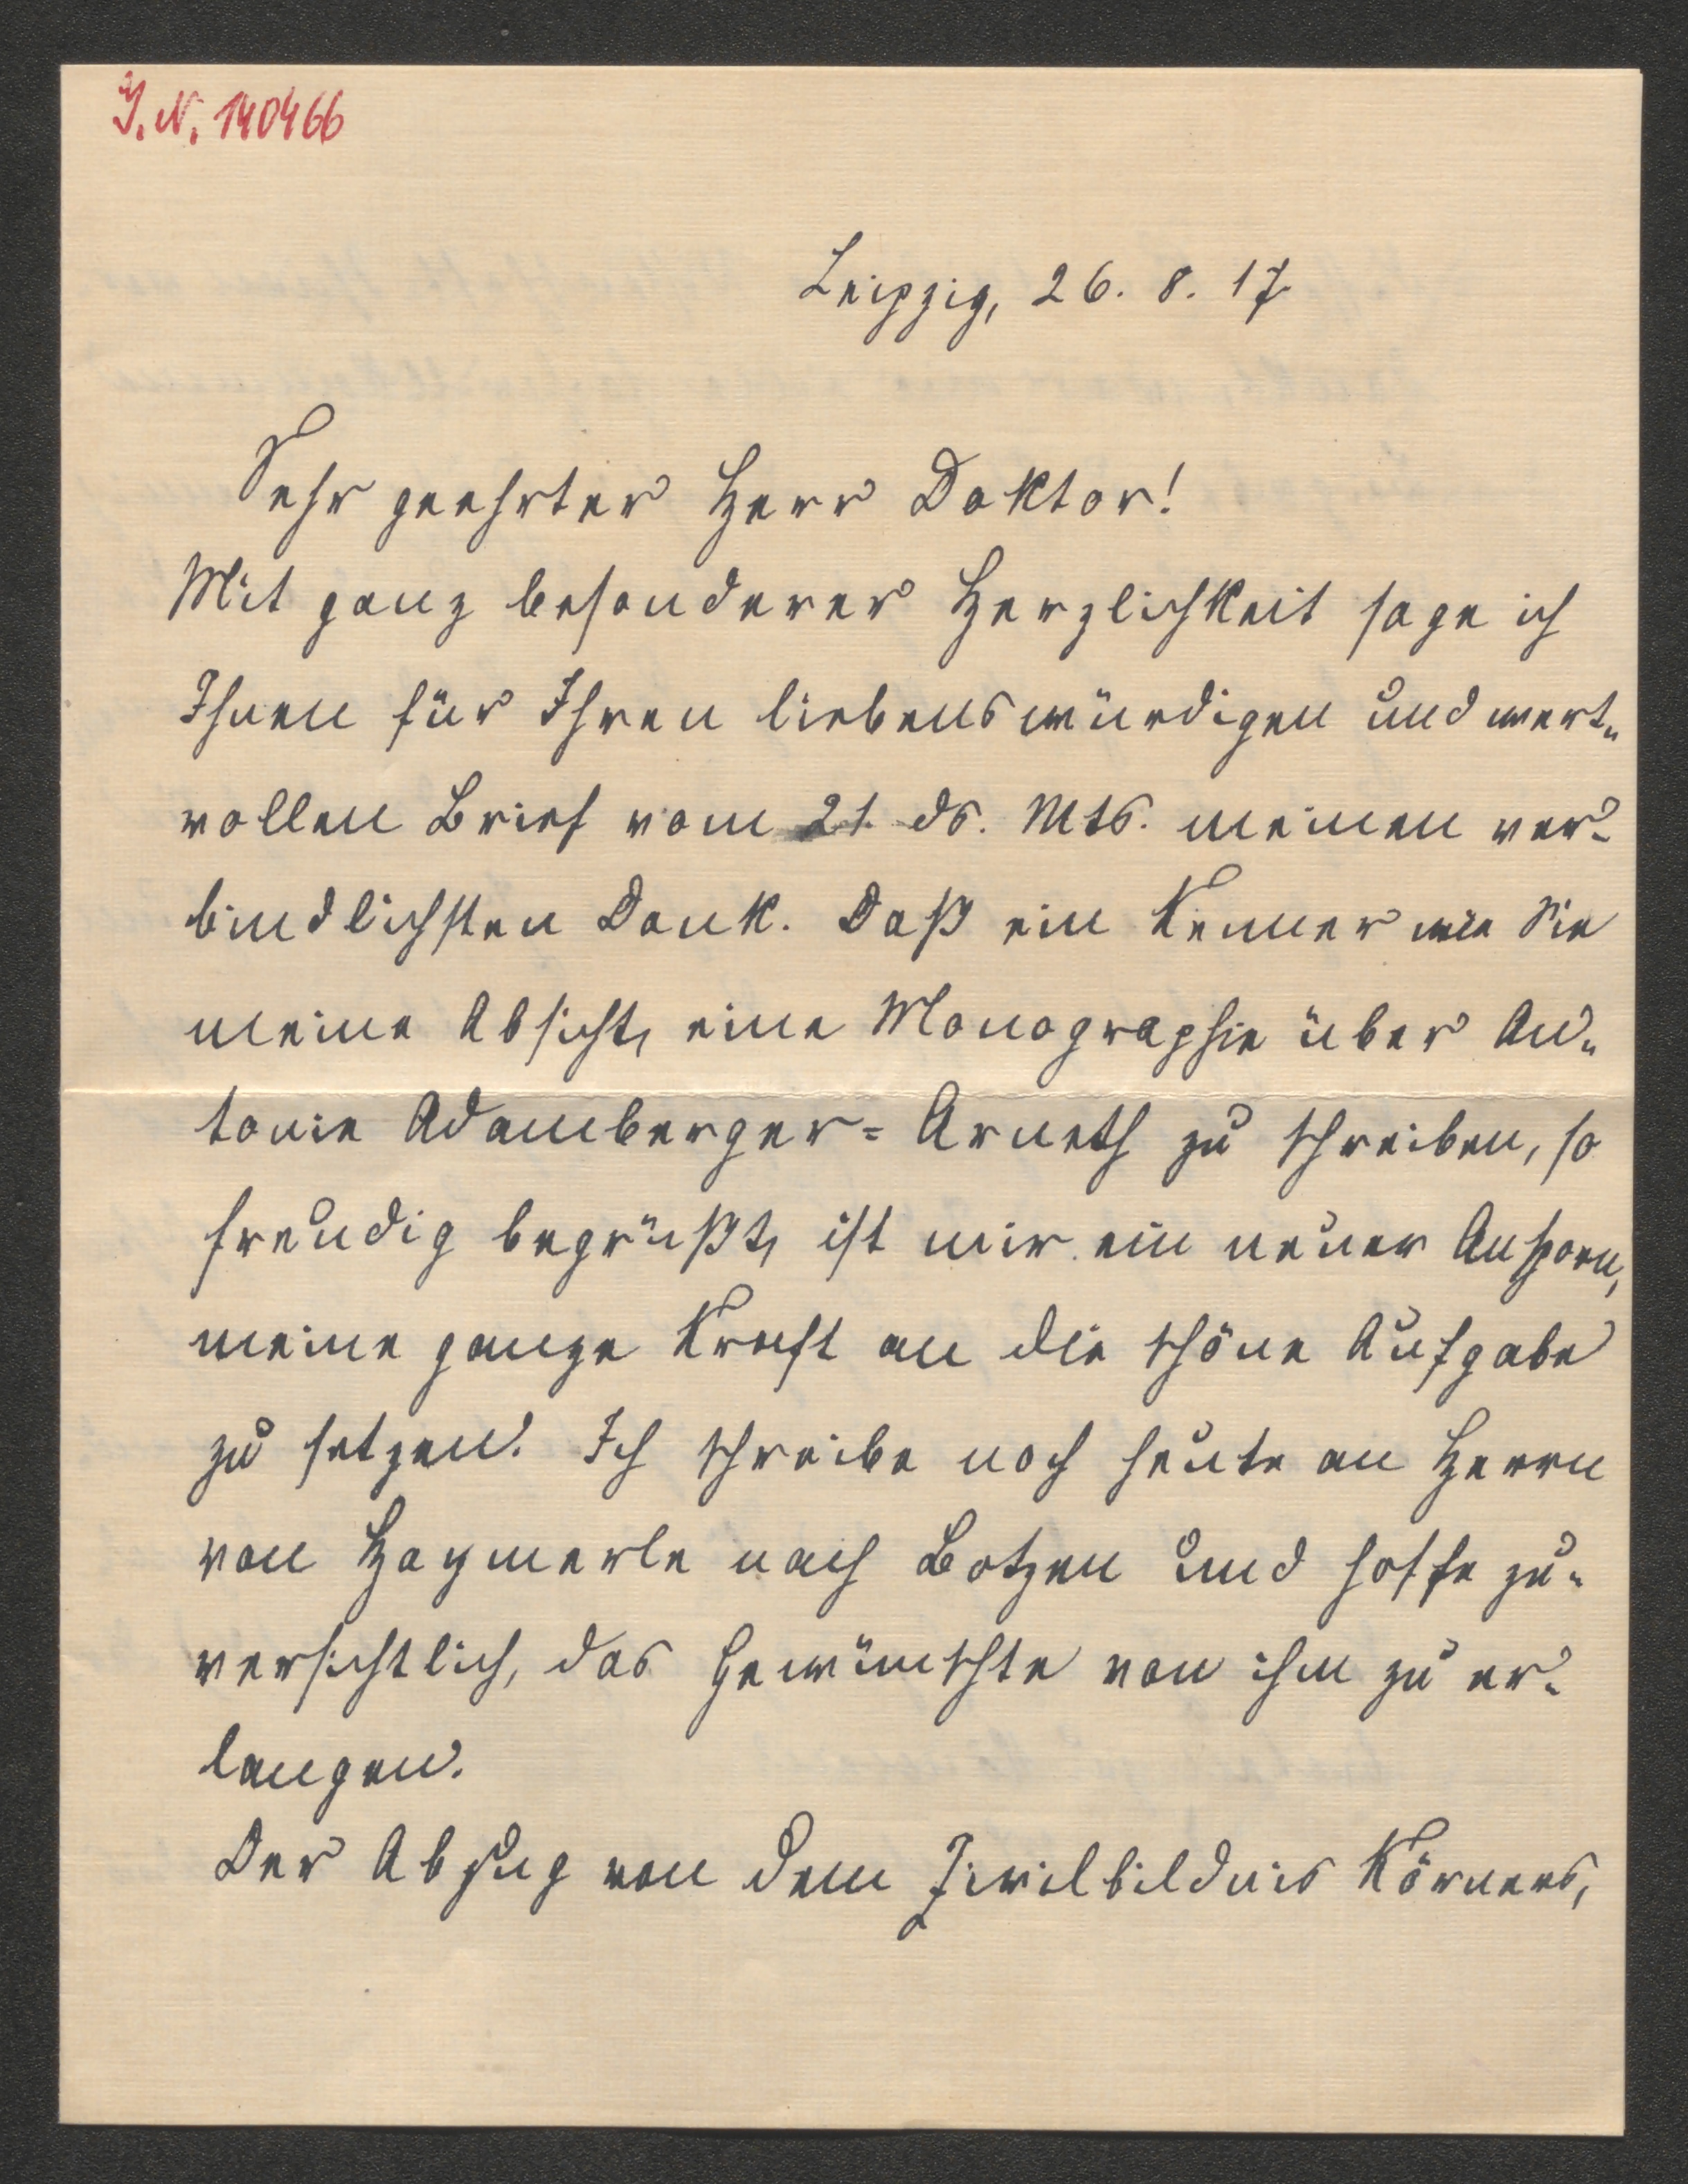 J. N. 140466
Leipzig, 26. 8. 17.
Sehr geehrter Herr Doktor!
Mit ganz besonderer Herzlichkeit sage ich
Ihnen für Ihren liebenswürdigen und wert-
vollen Brief vom 21. ds. Mts. meinen ver-
bindlichsten Dank. Daß ein Kenner wie Sie
meine Absicht, eine Monographie über An-
tonie Adamberger-Arneth zu schreiben, so
freudig begrüßt, ist mir ein neuer Ansporn,
meine ganze Kraft an die schöne Aufgabe
zu setzen. Ich schreibe noch heute an Herrn
von Haymerle nach Botzen und hoffe zu-
versichtlich, das Gewünschte von ihm zu er-
langen.
Der Abzug von dem Zivilbildnis Körners,